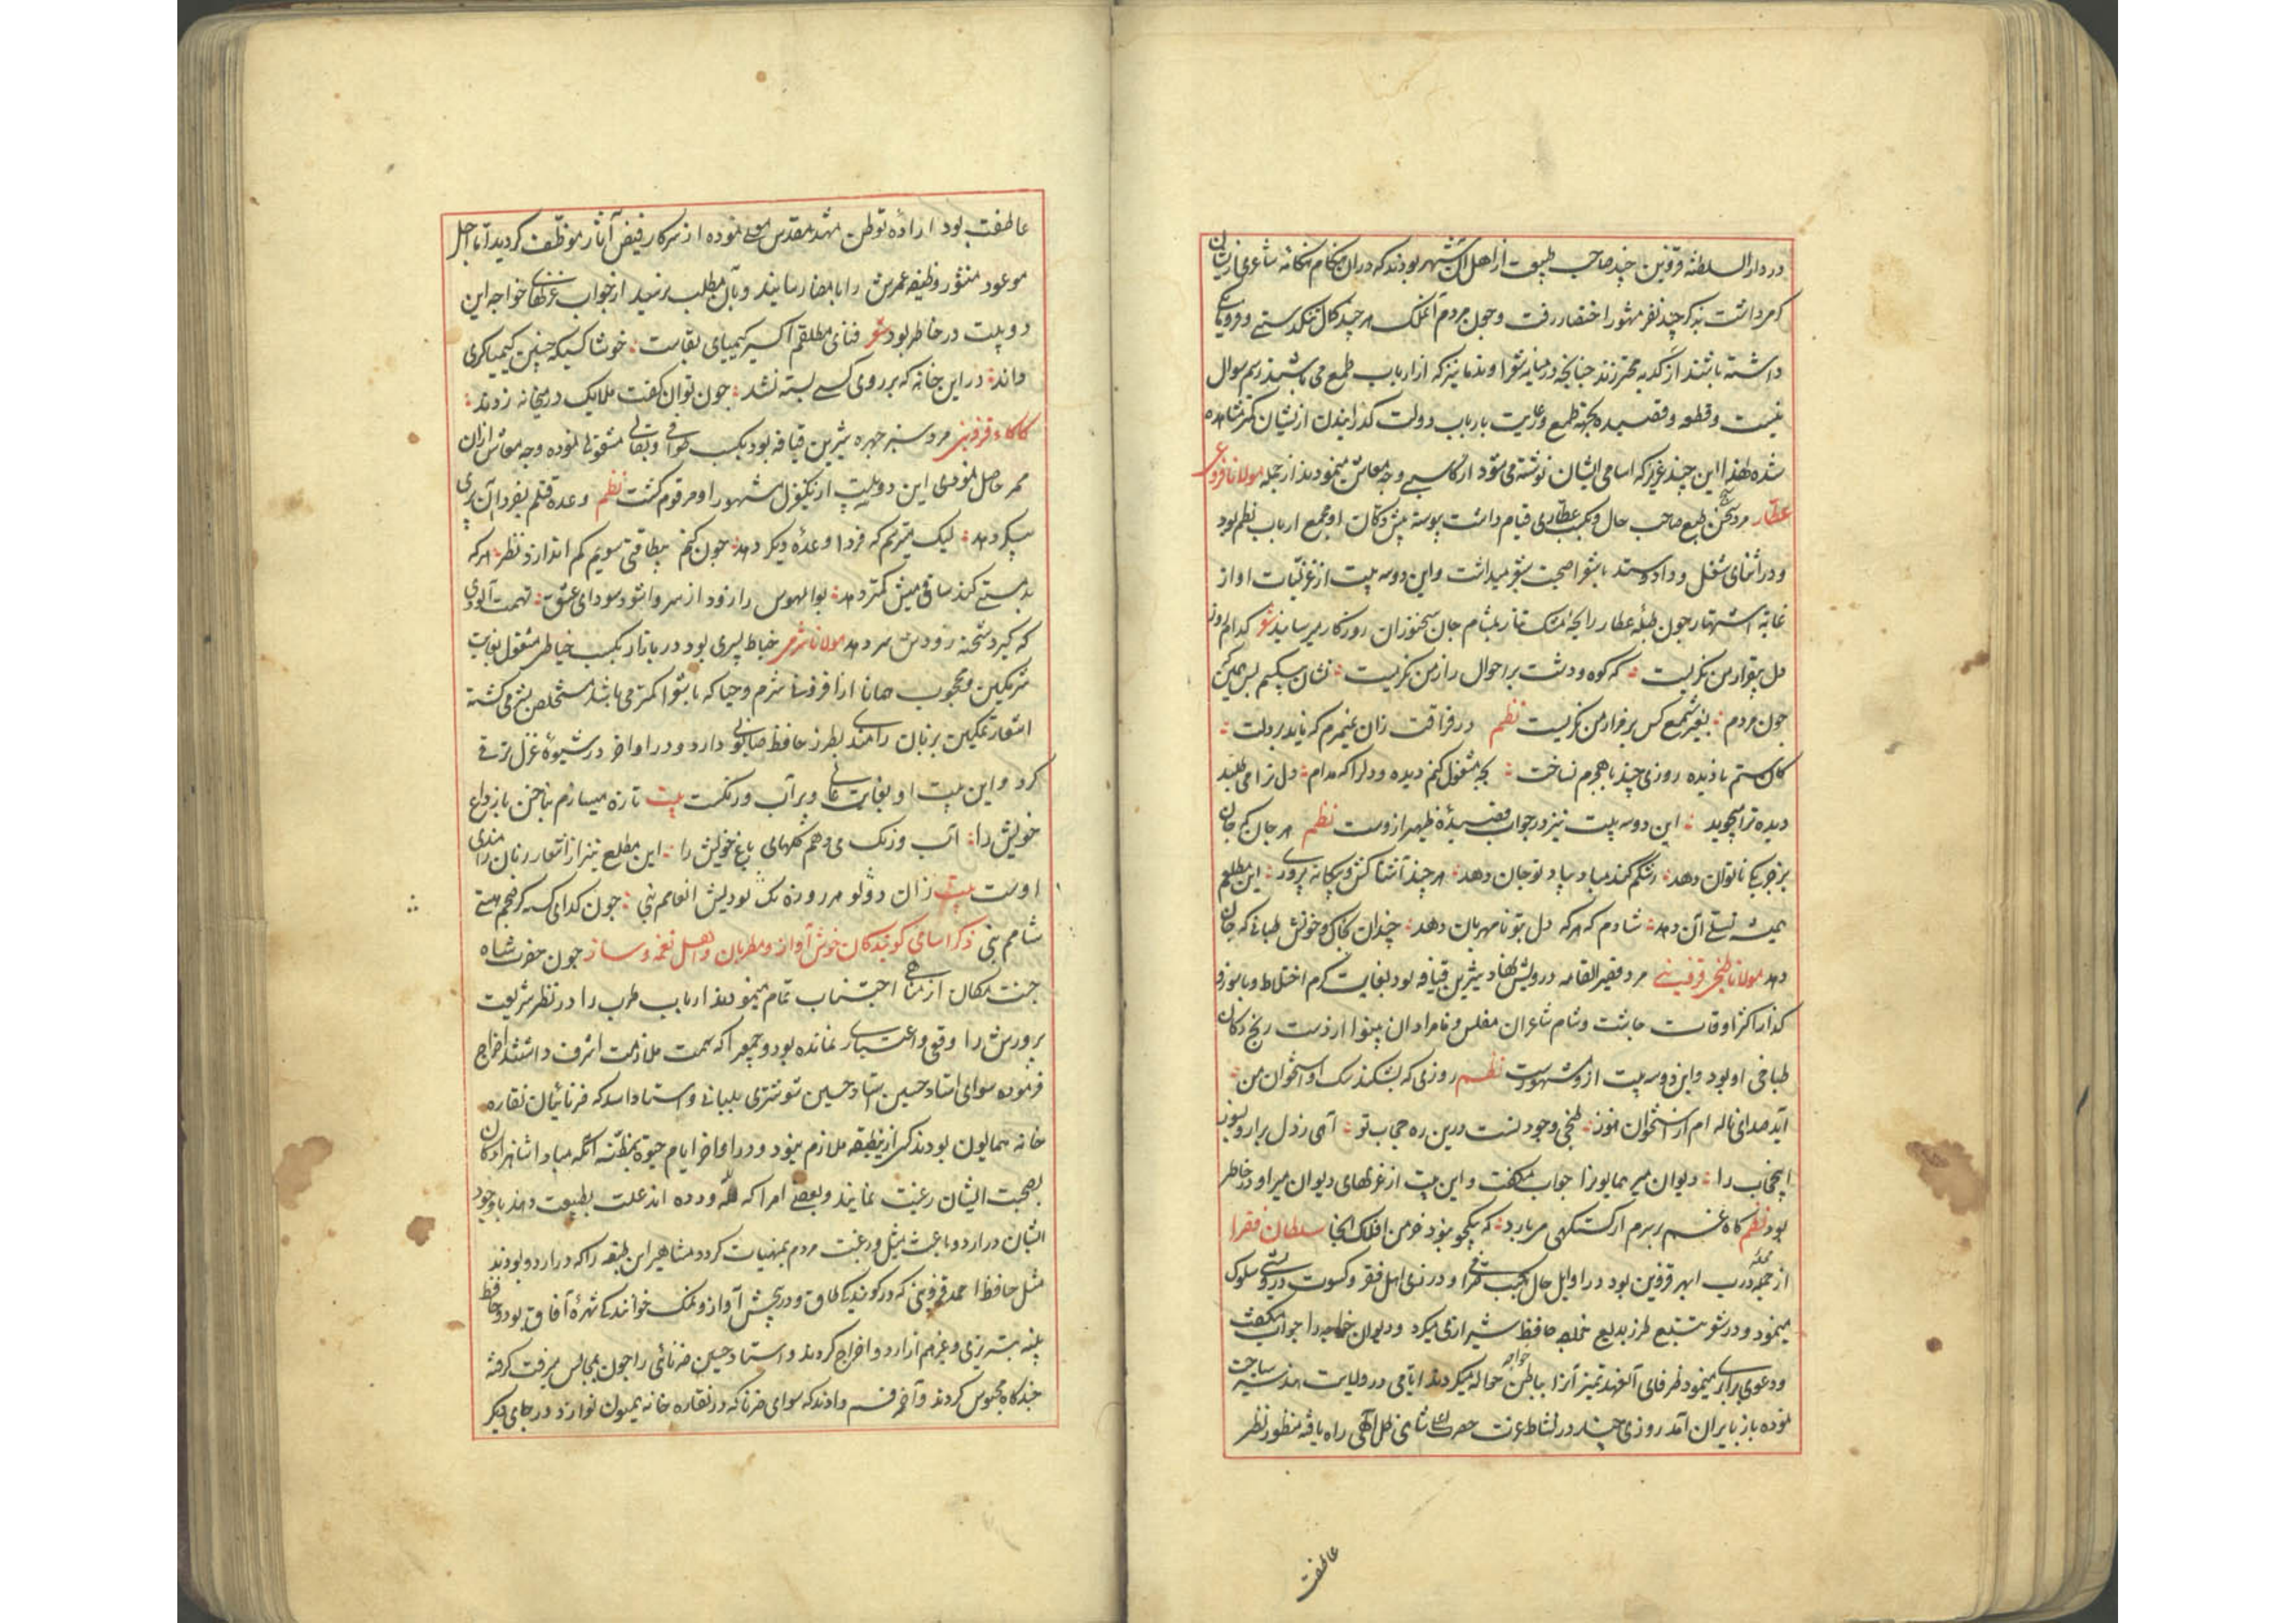 در دار السلطنه قزوین چند صاحب طبیعت از اهل آن شهر بودند که در آن هنگام هنگامه شاعری از ایشان
گرم داشت بذکر چند نفر مشهور اختصار رفت و چون مردم آنملک هر چند کمال تنکدستی و فرومایگی
داشته باشند از کدیه محترزند چنانچه در میانه شعرا و ندما نیز که از ارباب طمع می باشند رسم سوال
نیست و قطعه و قصیده بجهة طمع و رعایت بارباب دولت گذرانیدن از ایشان کمتر مشاهده
شده لهذا این چند عزیز که اسامی ایشان نوشته می شود از کاسبی وجه معاش مینمودند از جمله مولانا فروغی
عطار مرد سخن سنج طبع صاحب حال و بکسب عطاری قیام داشت پیوسته پیش دکان او مجمع ارباب نظم بود
و در اثنای شغل و داد و ستد با شعرا صحبت شعر میداشت و این دو سه بیت از غزلیات او از
غایة اشتهار چون طبله عطار رایحه مشک تتار بمشام جان سخنوران روزگار میرساند شعر کدام روز
دل بیقرار من نگریست که کوه و دشت بر احوال زار من نگریست نشان بیکسیم بس همین که
چون مردم بغیر شمع کس بر مزار من نگریست نظم در فراقت زان نمیرم که نباید بر دلت
کان ستم نادیده روزی چند با هجرم نساخت بچه مشغول کنم دیده و دل را که مدام دل ترا می طلبد
دیده ترا میجوید این دو سه بیت نیز در جواب قصیده ظهیر ازوست نظم هر جان که جان
بزخم نانوان دهد رشکم کند مباد بیاد تو جان دهد هر چند آشنا کش و بیگانه پروری این طلعم
همیشه تسلی آن دهد شادم که هر که دل بتو نامهربان دهد چندان بخاک و خونش طپانی که جان
دهد مولانا طبخی قزوینی مرد قصیر القامه درویش نهاد شیرین قیافه بود بغایت گرم اختلاط و با سوز و
گداز اکثر اوقات چاشت و شام شاعران مفلس و نامرادان بینوا از دست رنج دکان
طباخی او بود و این دو سه بیت ازو مشهورست نظم روزی که بشکند سگ او استخوان من
آید صدای ناله ام از استخوان هنوز طبخی وجود تست درین ره حجاب تو آهی ز دل برار و بسوز
این حجاب را دیوان میر همایون را جواب میگفت و این بیت از غزلهای دیوان میر او در خاطر
بود نظم کاه غم بر سرم از کشتگهی میبارد که بیکجو نبود خرمن افلاک آنجا سلطان فقرا
از محله درب ابهر قزوین بود در اوایل حال بکسب و در زی اهل فقر و کسوت درویشی سلوک
مینمود و در شعر تتبع طرز بدیع خواجه حافظ شیرازی میکرد و دیوان خواجه را جواب میگفت
و دعوی برابری مینمود ظرفای آنعهد تمیز آنرا بباطن خواجه حواله میکردند ایامی در ولایت هند سیاحت
نموده باز بایران آمد روزی چند در نشاط عزت حضرت اعلی شاهی ظل اللهی راه یافته منظور نظر
عاطفت
عاطفت بود اراده توطن مشهد مقدس معلی نموده از سرکار فیض آثار موظف گردید اما اجل
موعود منشور وظیفه عمرش را بامضا رسانید و بآن مطلب نرسید از جواب غزلهای خواجه این
دو بیت در خاطر بود شعر فنای مطلقم اکسیر کیمیای بقاست خوشا کسیکه چنین کیمیاگری
داند در این خانه که بر روی کسی بسته نشد چون توان گفت ملایک در میخانه زدند
کاکاء قزوینی مرد سبز چهره شیرین قیافه بود بکسب صرافی و بقالی مشغولی نموده وجه معاش از آن
ممر حاصل نمودی این دو بیت از یکغزل مشهور او مرقوم گشت نظم وعده قتلم بفردا آن پری
پیکر دهد لیک میترسم که فردا وعده دیگر دهد چون کنم بیطاقتی سویم کم اندازد نظر هر که
بدمستی کند ساقی میش کمتر دهد بوالهوس را زود از سر وا شود سودای عشق تهمت آلودی
که گیرد شحنه زودش سر دهد مولانا شرمی خیاط پسری بود در بازار بکسب خیاطی مشغول بغایت
شرمگین و محجوب همانا از افزونی شرم و حیا که با شعرا کمتر می باشد متخلص بشرمی گشته
اشعار نمکین بر زبان رامند بطرز حافظ صابونی دارد و در اواخر در شیوه غزل ترقی
کرد و این بیت او بغایت عالی و پر آب و رنگست بیت تازه میسازم بناخن باز داغ
خویش را آب و رنگ می دهم گلهای باغ خویش را این مطلع نیز از اشعار زبان رامندی
اوست بیت زان دولو هر روزه یک بودیش انعامم بنی چون گدای که هر صبحم هستی
شامم بنی ذکر اسامی گویندگان خوش آواز و مطربان و اهل نغمه و ساز چون حضرت شاه
جنت مکان از مناهی اجتناب تمام مینمودند ارباب طرب را در نظر شریعت
پرورش را وقعی و اعتباری نمانده بود و جمعی را که سمت ملازمت اشرف داشتند اخراج
فرموده سوای استاد حسین شوشتری بلبانی و استاد اسد که سرنائیان نقاره
خانه همایون بودند کسی از آن طبقه ملازم نبود و در اواخر ایام حیوة بمظنه آنکه مبادا شاهزادگان
بصحبت ایشان رغبت نمایند و بعضی امرا که لله و دده اند علت بطبیعت دهند با وجود
ایشان در اردو باعث میل و رغبت مردم بمنهیات گردد مشاهیر این طبقه را که در اردو بودند
مثل حافظ احمد قزوینی که در گویندگی طاق و در پیش آواز و نمک خوانندگی شهره آفاق بود و حافظ
پنبه تبریزی و غیرهم از اردو اخراج کردند و استاد حسین سرنائی را چون بمجالس میرفت گرفته
چندگاه محبوس کردند و آخر قسم دادند که سوای سرنا که در نقاره خانه همیون نوازد در جای دیگر